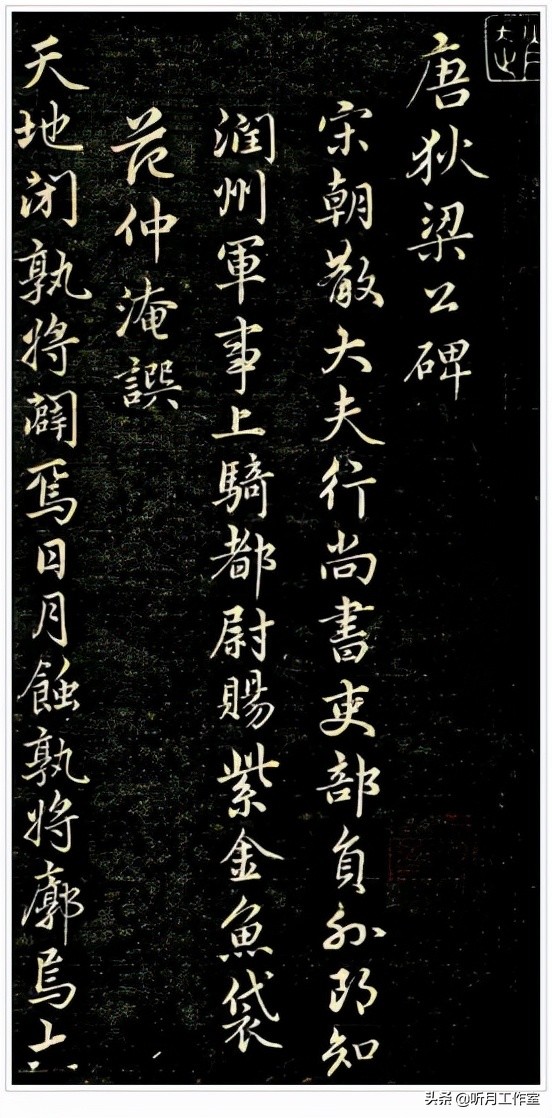 唐狄梁公碑
宋朝散大夫行尚書吏部員外郎知
潤州軍事上騎都尉賜紫金魚袋
范仲淹譔
天地閉孰將闢焉日月蝕孰將廓焉大
头条 @听月工作室